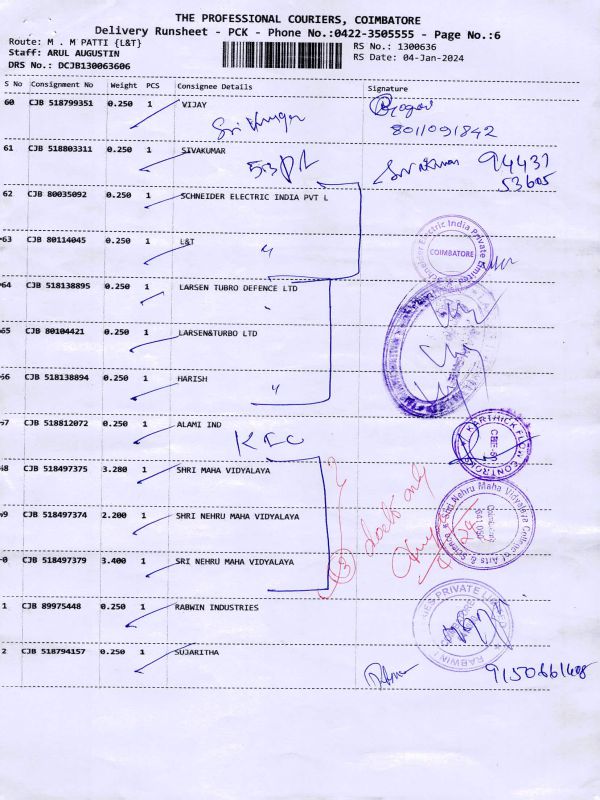 THE PROFESSIONAL COURIERS, COIMBATORE
Delivery Runsheet - PCK - Phone No.:0422-3505555 - Page No.:6
Route: M . M PATTI {L&T}
Staff: ARUL AUGUSTIN
DRS No.: DCJB130063606
RS No.: 1300636
RS Date: 04-Jan-2024
S No Consignment No Weight PCS Consignee Details Signature
60 CJB 518799351 0.250 1 VIJAY
8011091842
61 CJB 518803311 0.250 1 SIVAKUMAR
94437
53605
62 CJB 80035092 0.250 1 SCHNEIDER ELECTRIC INDIA PVT L
63 CJB 80114045 0.250 1 L&T
Schneider Electric India Private Limited
COIMBATORE
64 CJB 518138895 0.250 1 LARSEN TUBRO DEFENCE LTD
65 CJB 80104421 0.250 1 LARSEN&TURBO LTD
66 CJB 518138894 0.250 1 HARISH
67 CJB 518812072 0.250 1 ALAMI IND
KARTHICK FLOW CONTROLS
68 CJB 518497375 3.280 1 SHRI MAHA VIDYALAYA
69 CJB 518497374 2.200 1 SHRI NEHRU MAHA VIDYALAYA
3 docts only
Nehru Maha Vidyalaya College of Arts & Science
641 050
0 CJB 518497379 3.400 1 SRI NEHRU MAHA VIDYALAYA
1 CJB 89975448 0.250 1 RABWIN INDUSTRIES
RABWIN
2 CJB 518794157 0.250 1 SUJARITHA